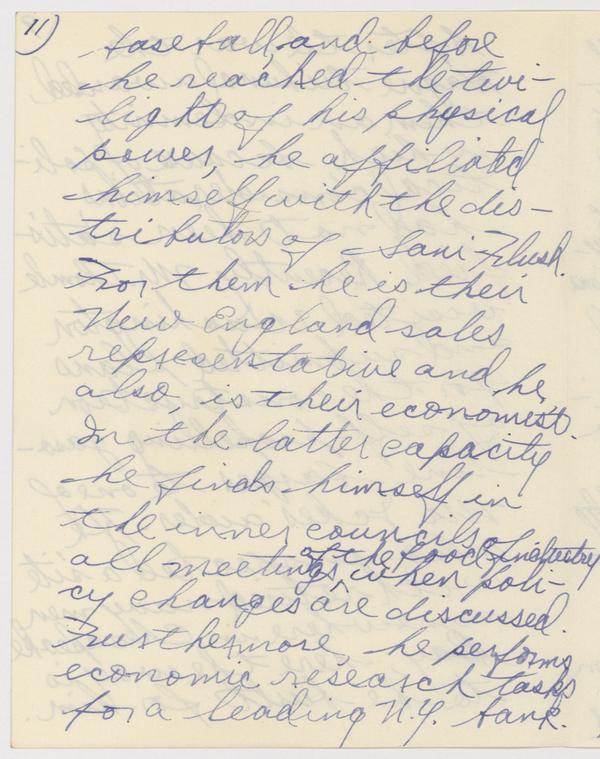 11)
baseball, and before
he reached the twi-
light of his physical
power, he affiliated
himself with the dis-
tributors of Sani-Flush.
For them he is their
New England sales
representative and, he,
also, is their economist.
In the latter capacity
he finds himself in
the inner councils of
all meetings of the food industry, when poli-
cy changes are discussed.
Furthermore, he performs
economic research tasks
for a leading N.Y. bank.